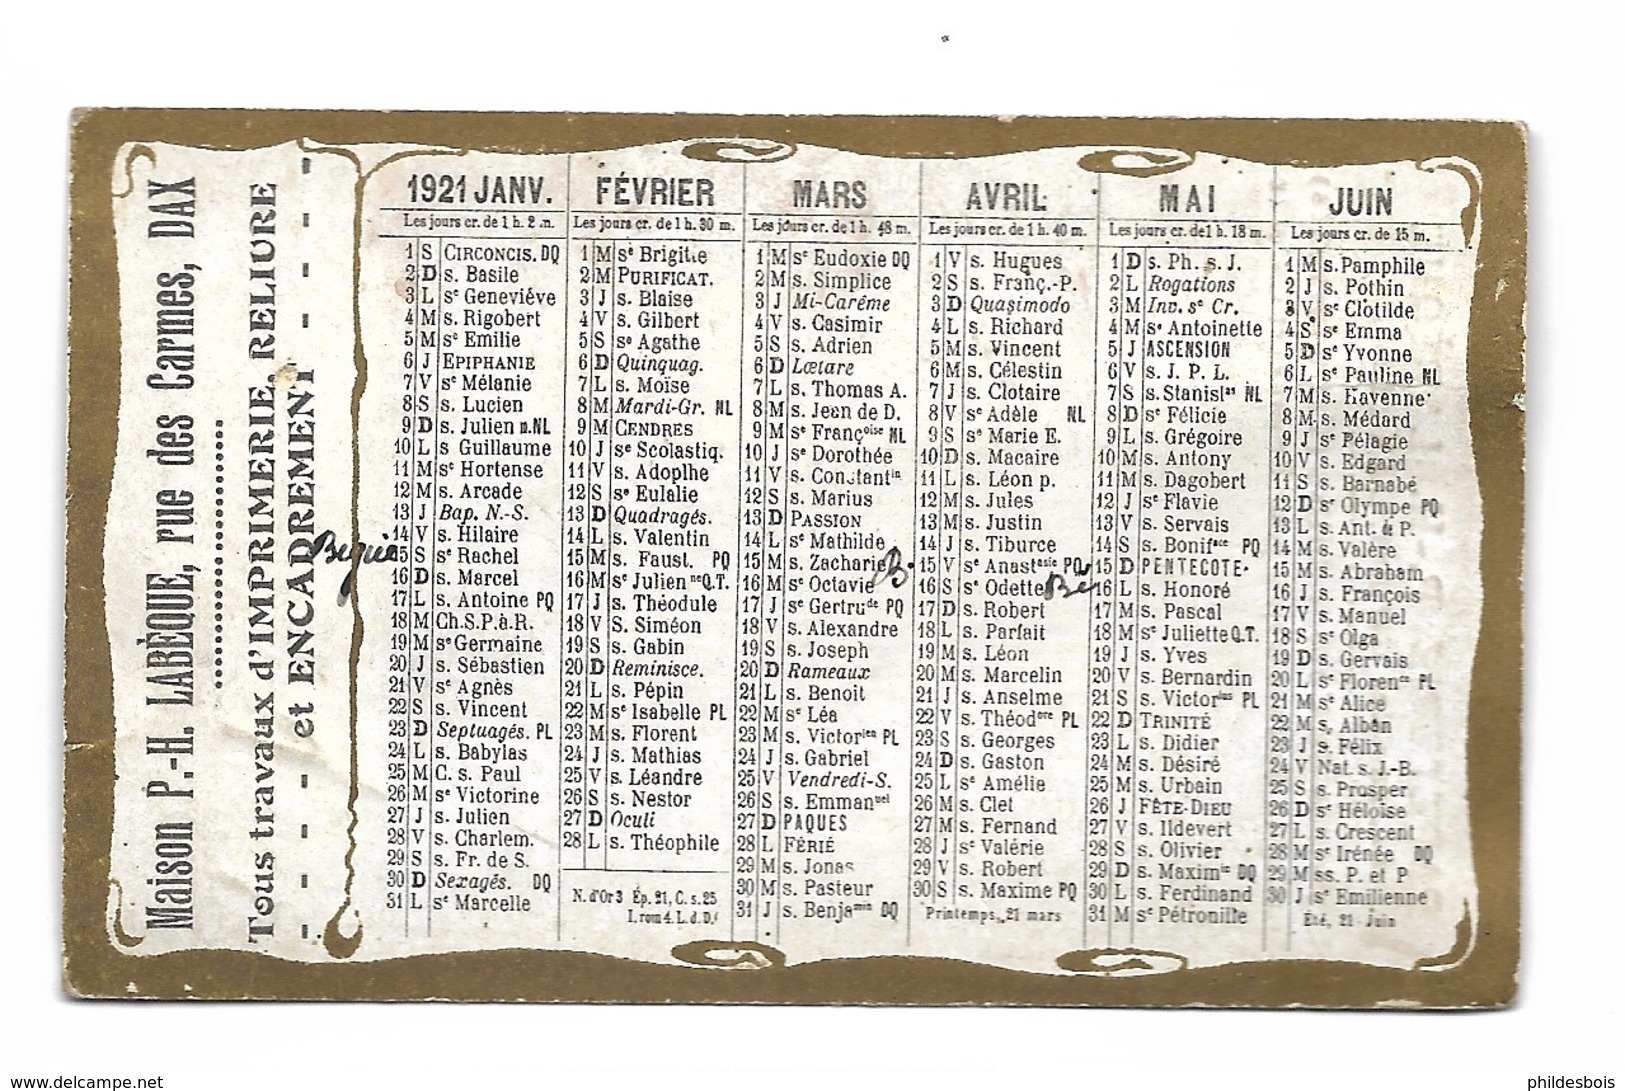 Maison P.-H. LABÈQUE, rue des Carmes, DAX
Tous travaux d'IMPRIMERIE, RELIURE
et ENCADREMENT
1921 JANV.
Les jours cr. de 1 h. 2 m.
1 S CIRCONCIS. DQ
2 D s. Basile
3 L se Geneviéve
4 M s. Rigobert
5 M se Emilie
6 J EPIPHANIE
7 V se Mélanie
8 S s. Lucien
9 D s. Julien m. NL
10 L s Guillaume
11 M se Hortense
12 M s. Arcade
13 J Bap. N.-S.
14 V s. Hilaire
15 S se Rachel
16 D s. Marcel
17 L s. Antoine PQ
18 M Ch.S.P.à.R.
19 M se Germaine
20 J s. Sébastien
21 V se Agnès
22 S s. Vincent
23 D Septuagés. PL
24 L s. Babylas
25 M C. s. Paul
26 M se Victorine
27 J s. Julien
28 V s. Charlem.
29 S s. Fr. de S.
30 D Sexagés. DQ
31 L se Marcelle
FÉVRIER
Les jours cr. de 1 h. 30 m.
1 M se Brigitte
2 M PURIFICAT.
3 J s. Blaise
4 V s. Gilbert
5 S se Agathe
6 D Quinquag.
7 L s. Moïse
8 M Mardi-Gr. NL
9 M CENDRES
10 J se Scolastiq.
11 V s. Adoplhe
12 S se Eulalie
13 D Quadragés.
14 L s. Valentin
15 M s. Faust. PQ
16 M se Julien ne Q.T.
17 J s. Théodule
18 V S. Siméon
19 S s. Gabin
20 D Reminisce.
21 L s. Pépin
22 M se Isabelle PL
23 M s. Florent
24 J s. Mathias
25 V s. Léandre
26 S s. Nestor
27 D Oculi
28 L s. Théophile
N. d'Or 3 Ép. 21, C. s. 25
I. rom 4. L. d. D.
MARS
Les jours cr. de 1 h. 48 m.
1 M se Eudoxie DQ
2 M s. Simplice
3 J Mi-Carême
4 V s. Casimir
5 S s. Adrien
6 D Lœtare
7 L s. Thomas A.
8 M s. Jean de D.
9 M se Françoise NL
10 J se Dorothée
11 V s. Constantin
12 S s. Marius
13 D PASSION
14 L se Mathilde
15 M s. Zacharie B.
16 M se Octavie
17 J se Gertrude PQ
18 V s. Alexandre
19 S s. Joseph
20 D Rameaux
21 L s. Benoit
22 M se Léa
23 M s. Victorien PL
24 J s. Gabriel
25 V Vendredi-S.
26 S s. Emmanuel
27 D PAQUES
28 L FÉRIÉ
29 M s. Jonas
30 M s. Pasteur
31 J s. Benjamin DQ
AVRIL
Les jours cr. de 1 h. 40 m.
1 V s. Hugues
2 S s. Franç.-P.
3 D Quasimodo
4 L s. Richard
5 M s. Vincent
6 M s. Célestin
7 J s. Clotaire
8 V se Adèle NL
9 S se Marie E.
10 D s. Macaire
11 L s. Léon p.
12 M s. Jules
13 M s. Justin
14 J s. Tiburce
15 V se Anastasie PQ
16 S se Odette Be
17 D s. Robert
18 L s. Parfait
19 M s. Léon
20 M s. Marcelin
21 J s. Anselme
22 V s. Théodore PL
23 S s. Georges
24 D s. Gaston
25 L se Amélie
26 M s. Clet
27 M s. Fernand
28 J se Valérie
29 V s. Robert
30 S s. Maxime PQ
Printemps, 21 mars
MAI
Les jours cr. de 1 h. 18 m.
1 D s. Ph. s. J.
2 L Rogations
3 M Inv. se Cr.
4 M se Antoinette
5 J ASCENSION
6 V s. J. P. L.
7 S s. Stanislas NL
8 D se Félicie
9 L s. Grégoire
10 M s. Antony
11 M s. Dagobert
12 J se Flavie
13 V s. Servais
14 S s. Boniface PQ
15 D PENTECOTE
16 L s. Honoré
17 M s. Pascal
18 M se Juliette Q.T.
19 J s. Yves
20 V s. Bernardin
21 S s. Victorius PL
22 D TRINITÉ
23 L s. Didier
24 M s. Désiré
25 M s. Urbain
26 J FÊTE-DIEU
27 V s. Ildevert
28 S s. Olivier
29 D s. Maximin DQ
30 L s. Ferdinand
31 M se Pétronille
JUIN
Les jours cr. de 15 m.
1 M s. Pamphile
2 J s. Pothin
3 V se Clotilde
4 S se Emma
5 D se Yvonne
6 L se Pauline NL
7 M s. Ravenne
8 M s. Médard
9 J se Pélagie
10 V s. Edgard
11 S s. Barnabé
12 D se Olympe PQ
13 L s. Ant. de P.
14 M s. Valère
15 M s. Abraham
16 J s. François
17 V s. Manuel
18 S se Olga
19 D s. Gervais
20 L se Florence PL
21 M se Alice
22 M s. Alban
23 J s. Félix
24 V Nat. s. J.-B.
25 S s. Prosper
26 D se Héloïse
27 L s. Crescent
28 M se Irénée DQ
29 M ss. P. et P
30 J se Emilienne
Été, 21 Juin
www.delcampe.net
phildesbois